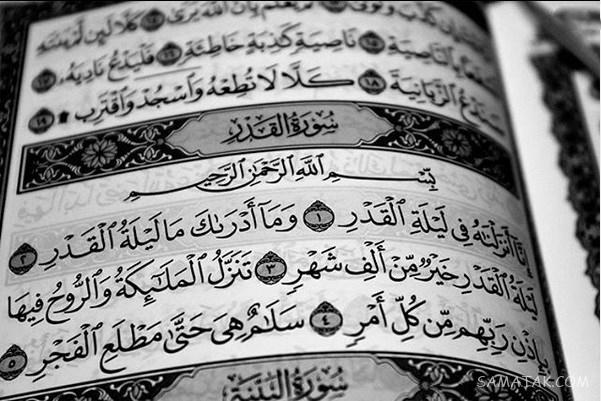 كَذَّبَ وَتَوَلَّىٰ ١٣ أَلَمْ يَعْلَم بِأَنَّ ٱللَّهَ يَرَىٰ ١٤ كَلَّا لَئِن لَّمْ يَنتَهِ
بِٱلنَّاصِيَةِ ١٥ نَاصِيَةٍ كَٰذِبَةٍ خَاطِئَةٍ ١٦ فَلْيَدْعُ نَادِيَهُۥ ١٧
سَنَدْعُ ٱلزَّبَانِيَةَ ١٨ كَلَّا لَا تُطِعْهُ وَٱسْجُدْ وَٱقْتَرِب ۩ ١٩
سُورَةُ القَدْرِ
بِسْمِ ٱللَّهِ ٱلرَّحْمَٰنِ ٱلرَّحِيمِ
إِنَّآ أَنزَلْنَٰهُ فِى لَيْلَةِ ٱلْقَدْرِ ١ وَمَآ أَدْرَىٰكَ مَا لَيْلَةُ ٱلْقَدْرِ ٢
لَيْلَةُ ٱلْقَدْرِ خَيْرٌ مِّنْ أَلْفِ شَهْرٍ ٣ تَنَزَّلُ ٱلْمَلَٰٓئِكَةُ وَٱلرُّوحُ فِيهَا
بِإِذْنِ رَبِّهِم مِّن كُلِّ أَمْرٍ ٤ سَلَٰمٌ هِىَ حَتَّىٰ مَطْلَعِ ٱلْفَجْرِ ٥
سُورَةُ البَيِّنَةِ
SAMATAK.COM